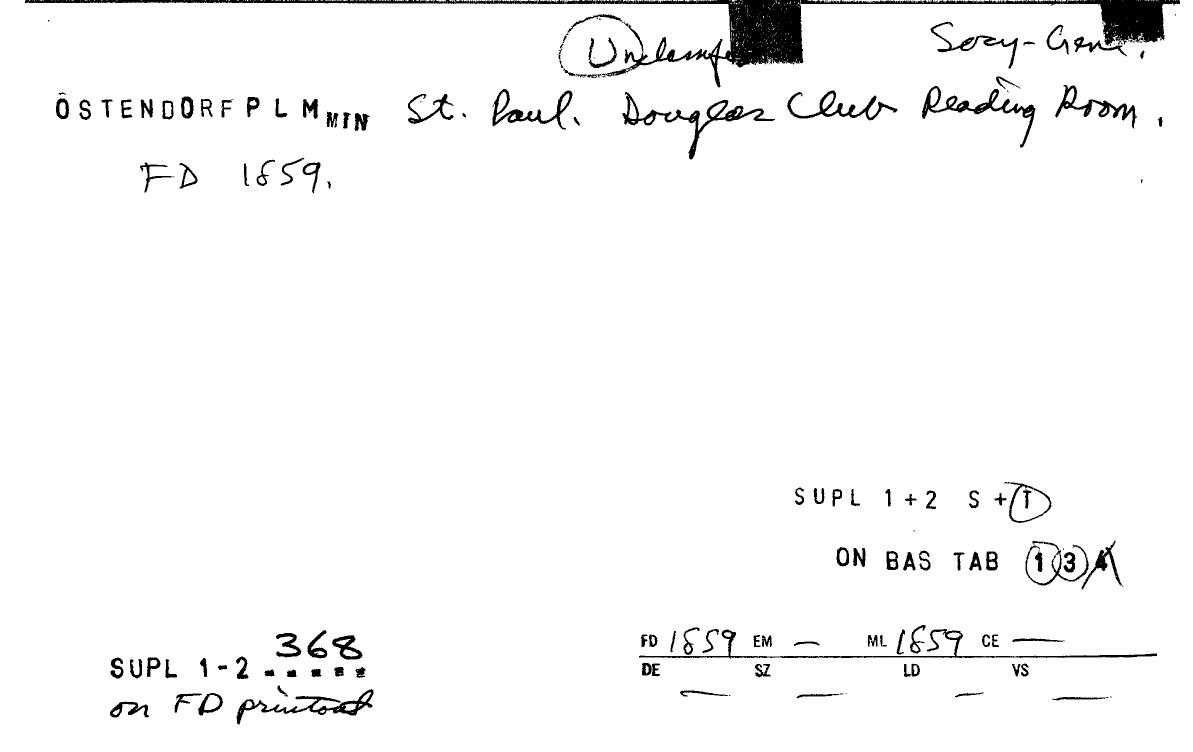 Unclassif Socy-Gene.
OSTENDORF P L M MIN St. Paul. Douglas Club Reading Room.
FD 1859.
SUPL 1+2 S + T
ON BAS TAB 1 3 4
368
SUPL 1-2
on FD printout
FD 1859 EM — ML 1859 CE —
DE SZ LD VS
— — — —